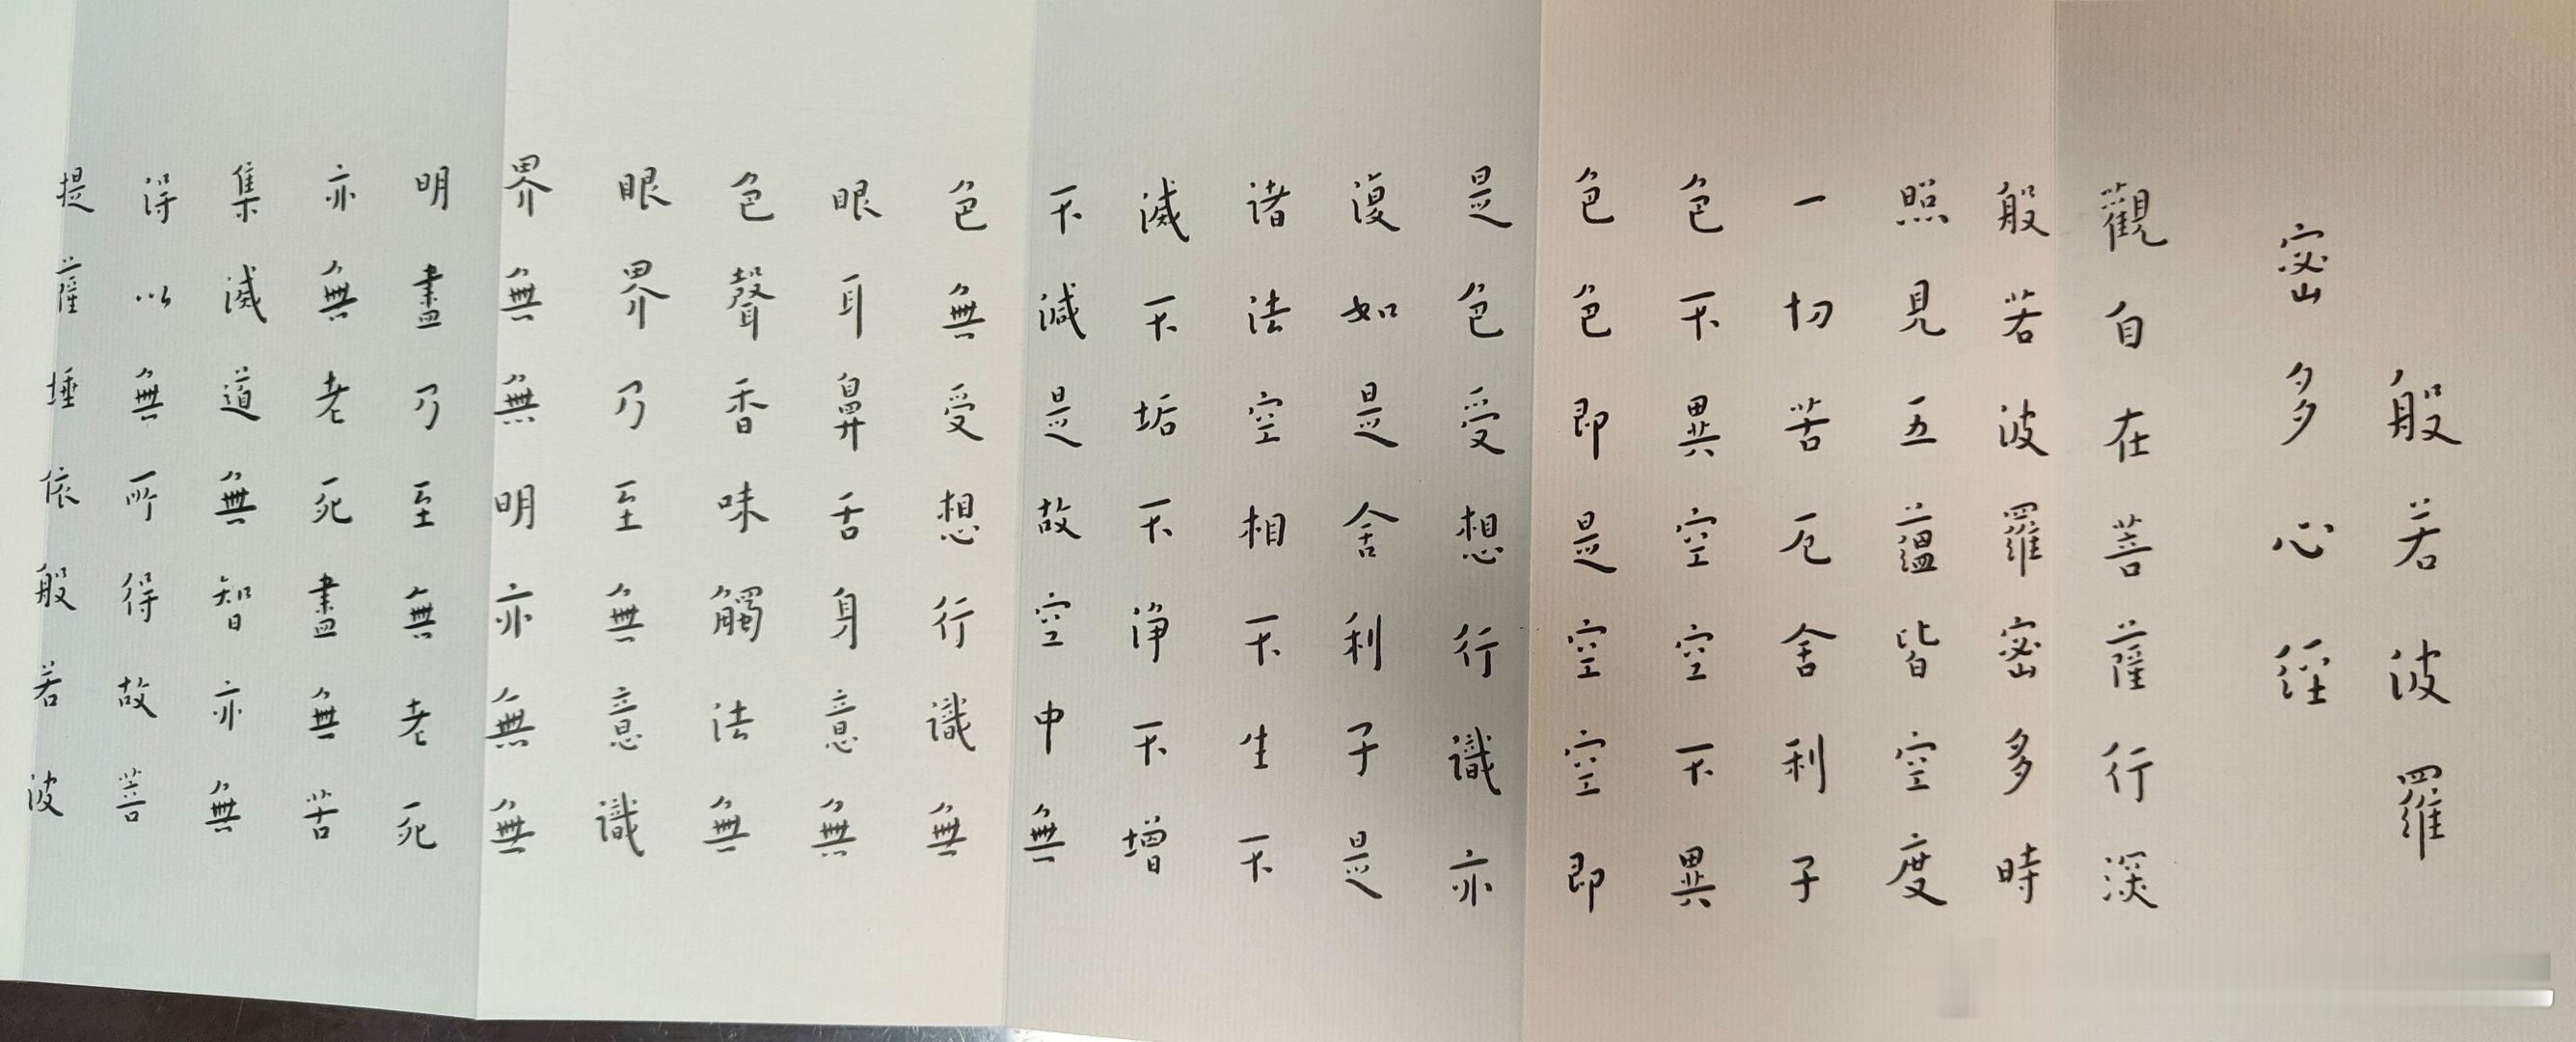 般若波羅
密多心經
觀自在菩薩行深
般若波羅密多時
照見五蘊皆空度
一切苦厄舍利子
色不異空空不異
色色即是空空即
是色受想行識亦
復如是舍利子是
諸法空相不生不
滅不垢不淨不增
不減是故空中無
色無受想行識無
眼耳鼻舌身意無
色聲香味觸法無
眼界乃至無意識
界無無明亦無無
明盡乃至無老死
亦無老死盡無苦
集滅道無智亦無
得以無所得故菩
提薩埵依般若波